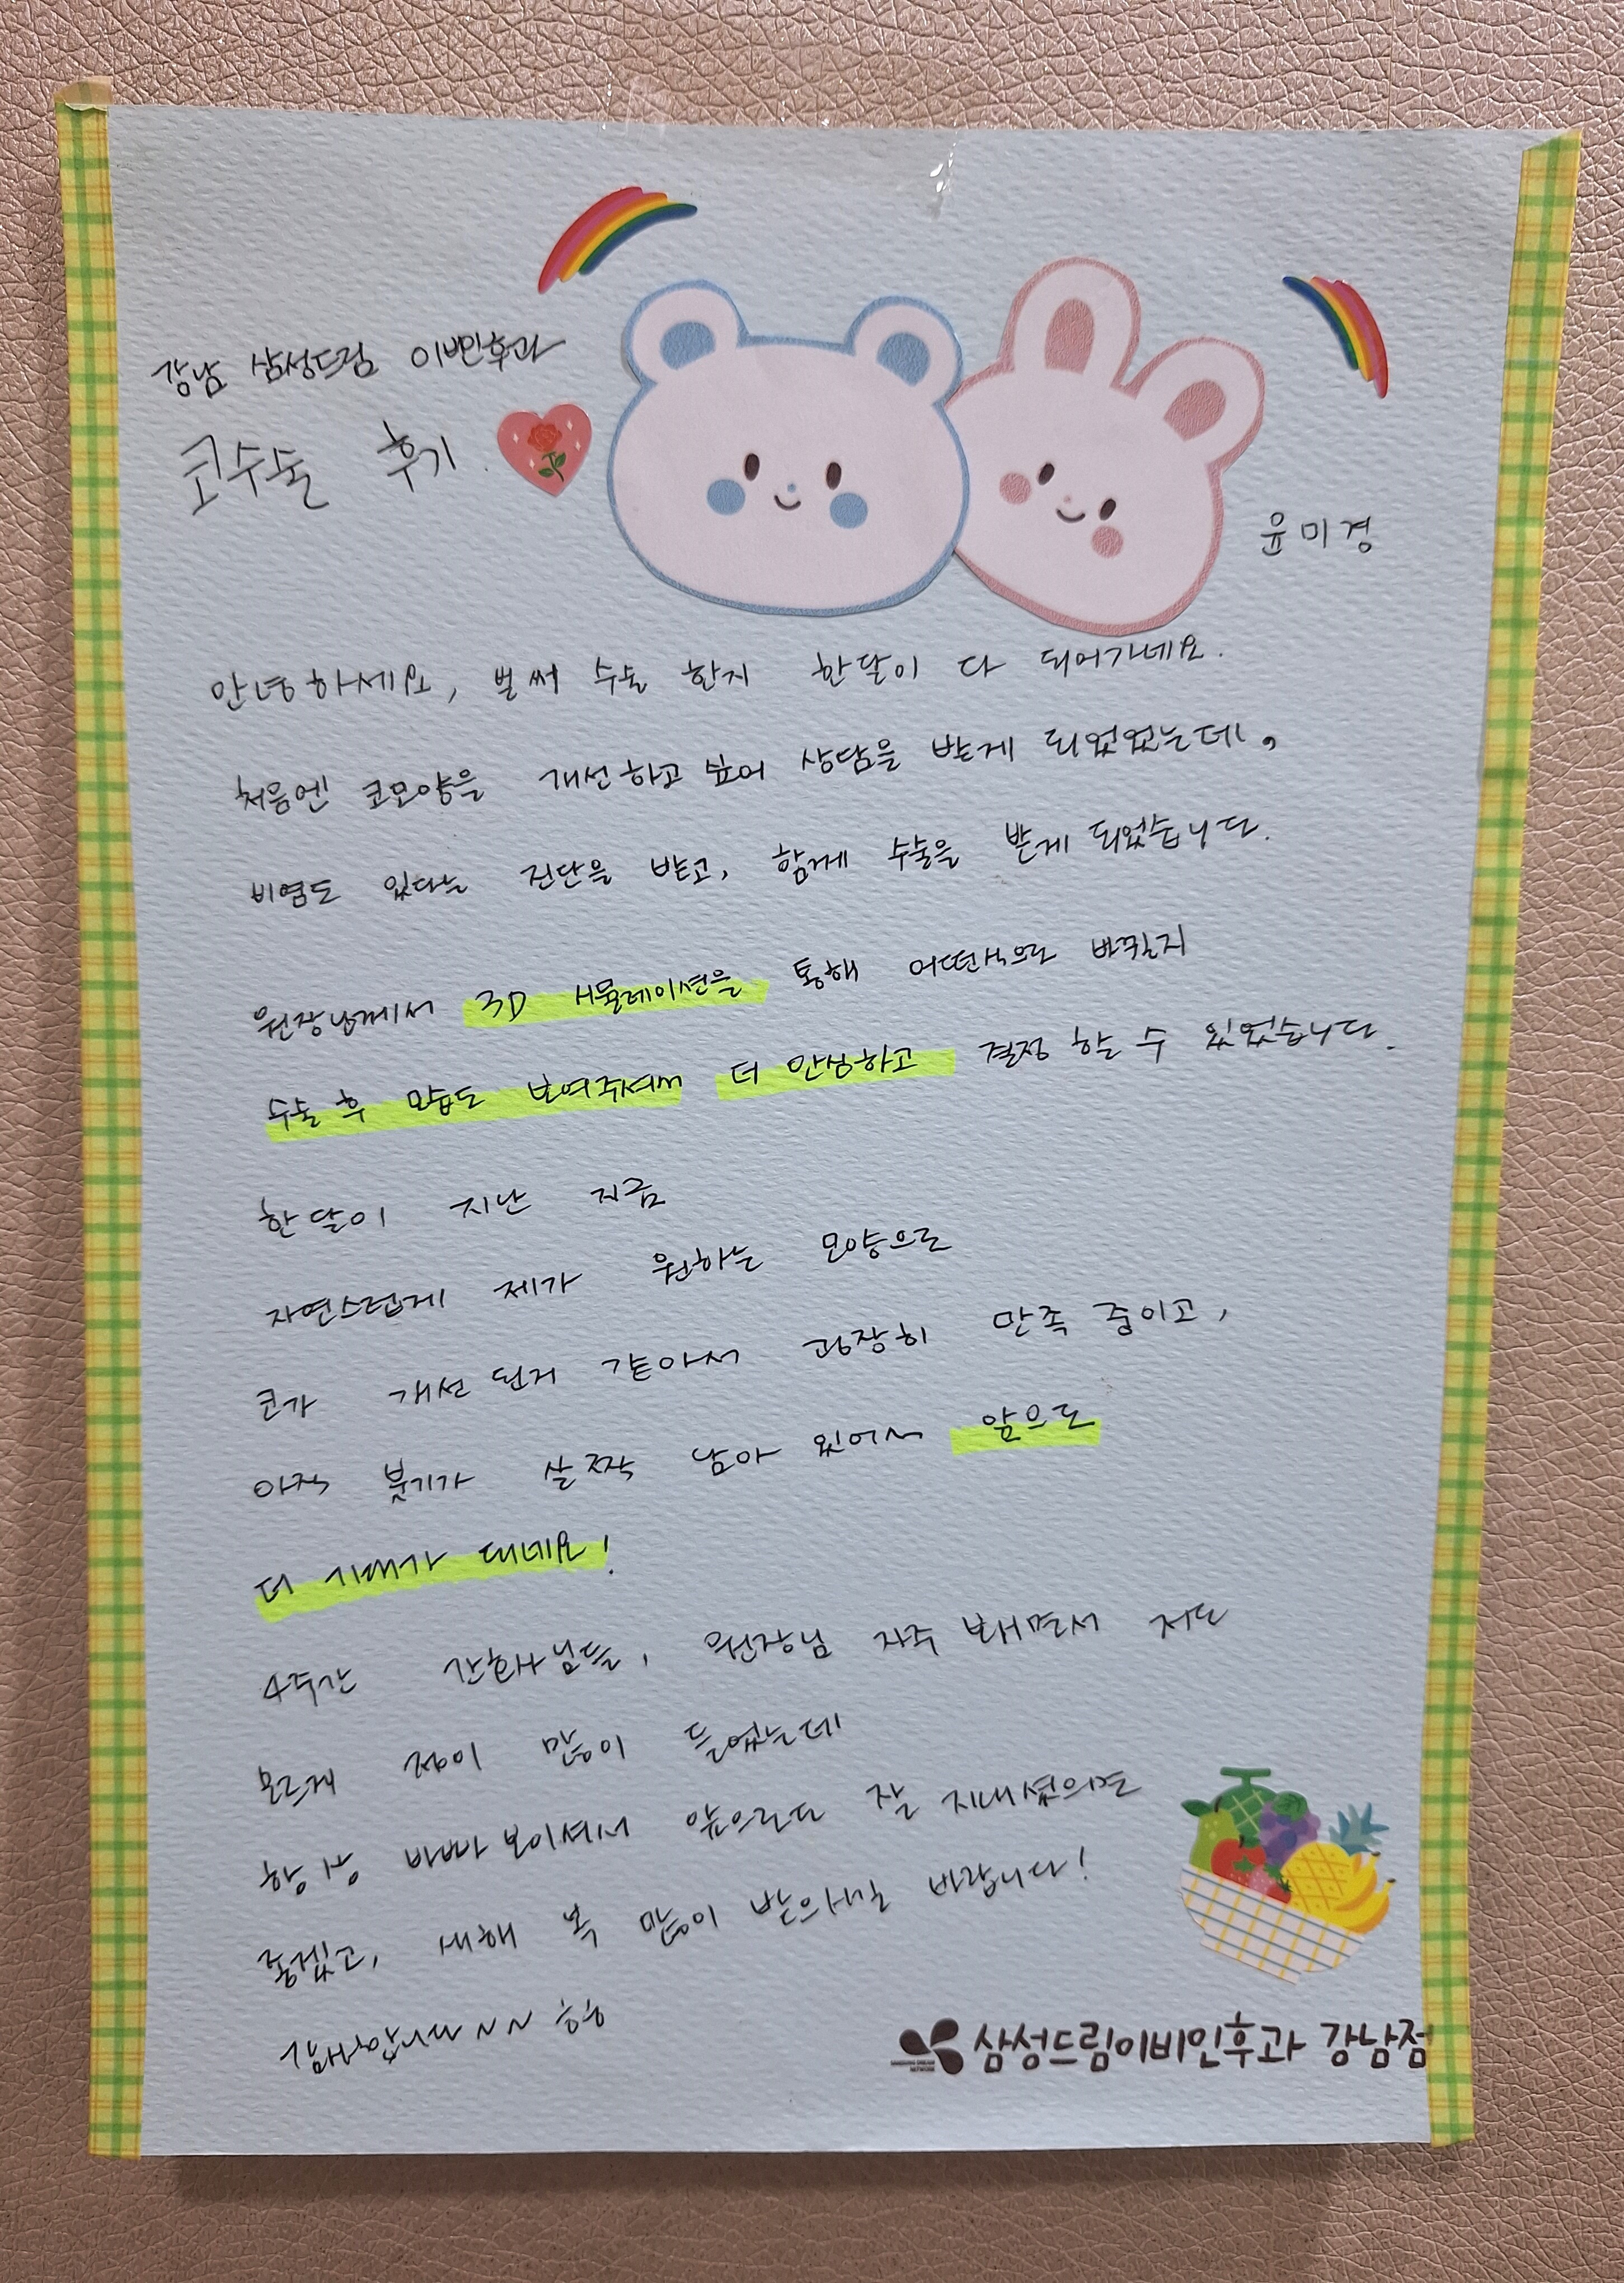 강남 삼성드림 이비인후과
코수술 후기.
윤미경
안녕하세요, 벌써 수술 한지 한달이 다 되어가네요.
처음엔 코모양을 개선하고 싶어 상담을 받게 되었었는데,
비염도 있다는 진단을 받고, 함께 수술을 받게 되었습니다.
원장님께서 3D 시뮬레이션을 통해 어떤식으로 바뀔지
수술 후 모습도 보여주셔서 더 안심하고 결정 할 수 있었습니다.
한달이 지난 지금
자연스럽게 제가 원하는 모양으로
코가 개선 된거 같아서 굉장히 만족 중이고,
아직 붓기가 살짝 남아 있어서 앞으로
더 기대가 돼네요!
4주간 간호사님들, 원장님 자주 봬면서 저도
모르게 정이 많이 들었는데
항상 바빠보이셔서 앞으로도 잘 지내셨으면
좋겠고, 새해 복 많이 받으시길 바랍니다!
감사합니다~~ ㅎㅎ
삼성드림이비인후과 강남점